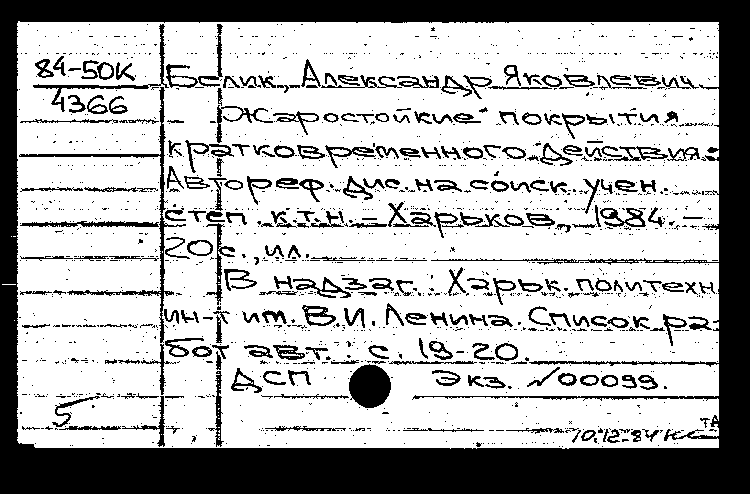 84-50К
4366
Белик, Александр Яковлевич.
Жаростойкие покрытия
кратковременного действия:
Автореф. дис. на соиск. учен.
степ. к.т.н. – Харьков, 1984. –
20 с., ил.
В надзаг.: Харьк. политехн.
ин-т им. В.И. Ленина. Список ра-
бот авт.: с. 19-20.
ДСП Экз. №00099.
5
ТА
10.12.84